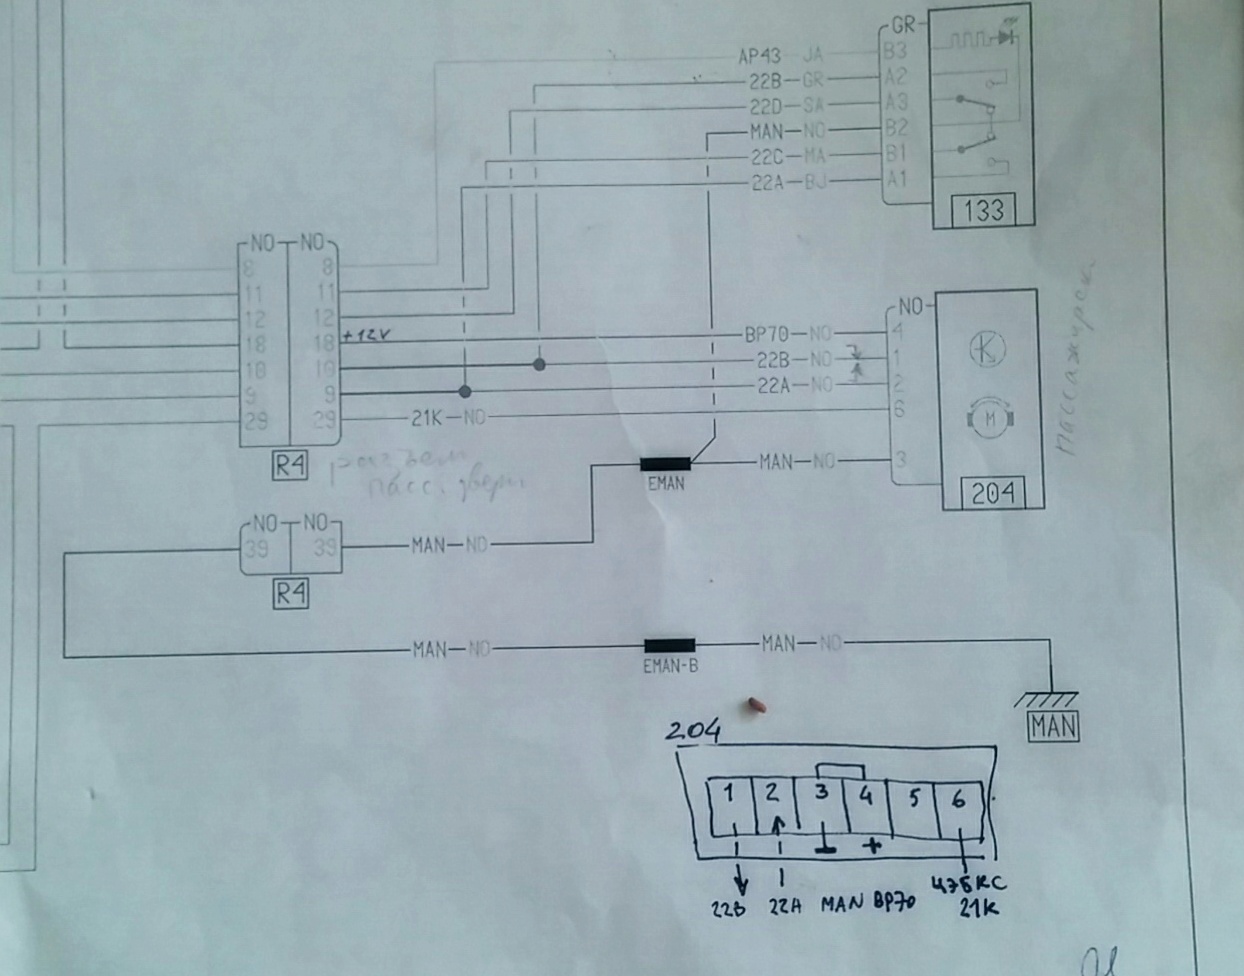 GR
AP43 JA B3
22B GR A2
22D SA A3
MAN NO B2
22C MA B1
22A BJ A1
133
NO NO
8 8
11 11
12 12
18 +12V 18
19
9 9
29 29
21K NO
R4
разъем
пасс. двери
NO
BP70 NO 4
22B NO 1
22A NO 2
6
MAN NO 3
K
M
204
Пассажирск.
EMAN
NO NO
39 39
MAN NO
R4
MAN NO
EMAN-B
MAN NO
MAN
204
1 2 3 4 5 6
+
22B 22A MAN BP70
21K